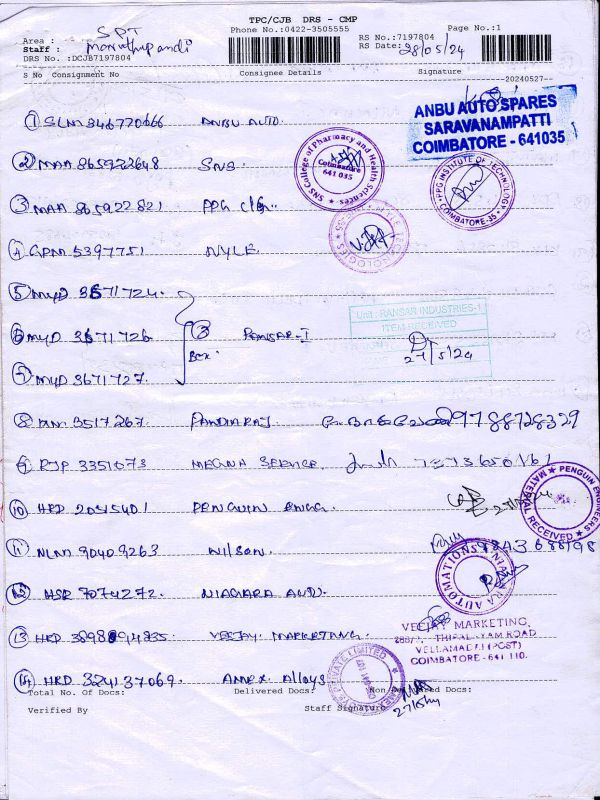 TPC/CJB DRS - CMP
Area : SPT
Phone No.:0422-3505555
RS No.:7197804
Page No.:1
Staff : Maruthupandi
RS Date: 28/05/24
DRS No. :DCJB7197804
S No Consignment No Consignee Details Signature
20240527
ANBU AUTO SPARES
SARAVANAMPATTI
COIMBATORE - 641035
1 SLM 346770666 ANBU AUTO.
2 MAA 865922648 SNS.
SNS College of Pharmacy and Health Sciences
Coimbatore
641 035
PPG INSTITUTE OF TECHNOLOGY
COIMBATORE-35
3 MAA 865922821 PPG Clg.
4 GPM 5397751 NYLE.
5 MYD 3671724.
Unit : RANSAR INDUSTRIES-1
ITEM RECEIVED
6 MYD 3671726 3 Box RANSAR-I
27/5/24
7 MYD 3671727.
8 3517267. PANDIARAJ 9788728329
9 RJP 3351073 MEGNA SERVICE.
10 HRD 2045401 PENGUIN ENGG. 27/5/24
PENGUIN ENGINEERS
MATERIAL RECEIVED
11 NLM 90409263 Nilson. 9843688198
12 HSR 7074272. NIAGARA AUTO.
NIAGARA AUTOMATIONS
13 HRD 389894835. VEEJAY MARKETING.
VEEJAY MARKETING,
VELLAMADAI (POST)
COIMBATORE - 641 110.
14 HRD 324137069. AMEX Alloys.
PRIVATE LIMITED
Total No. Of Docs: Delivered Docs: Non Delivered Docs:
Verified By Staff Signature